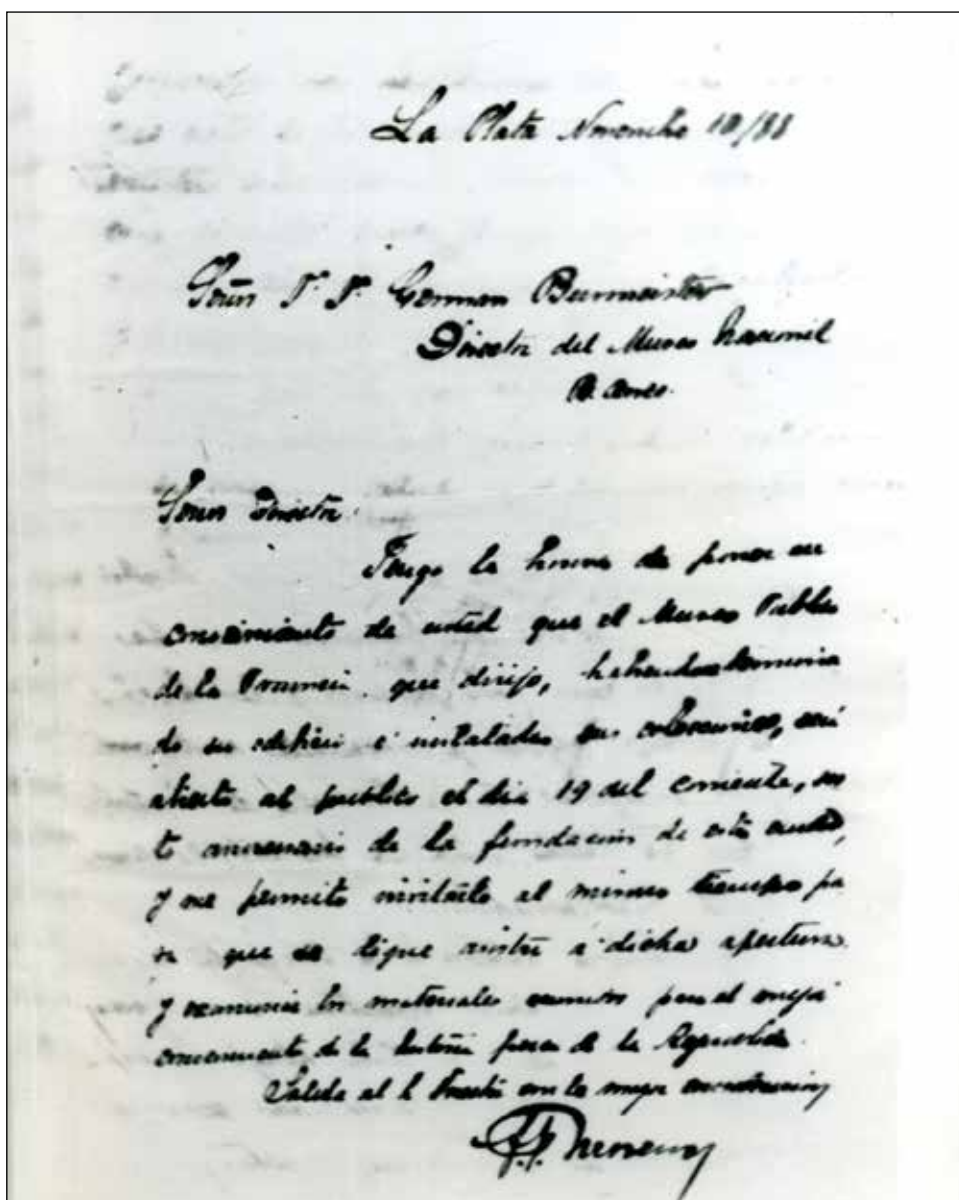 La Plata Noviembre 10/88
Señor Dr. Dn. German Burmeister
Director del Museo Nacional
B. Aires.
Señor Director.
Tengo la honra de poner en
conocimiento de usted que el Museo Público
de la Provincia que dirijo,
de su edificio é instaladas sus colecciones, será
abierto al publico el dia 19 del corriente,
aniversario de la fundacion de esta ciudad,
y me permito invitarlo al mismo tiempo pa
ra que se digne asistir á dicha apertura
y examinar los materiales reunidos para el mejor
conocimiento de la historia fisica de la Republica.
Saluda al Sr. Director con la mayor consideracion
F. P. Moreno